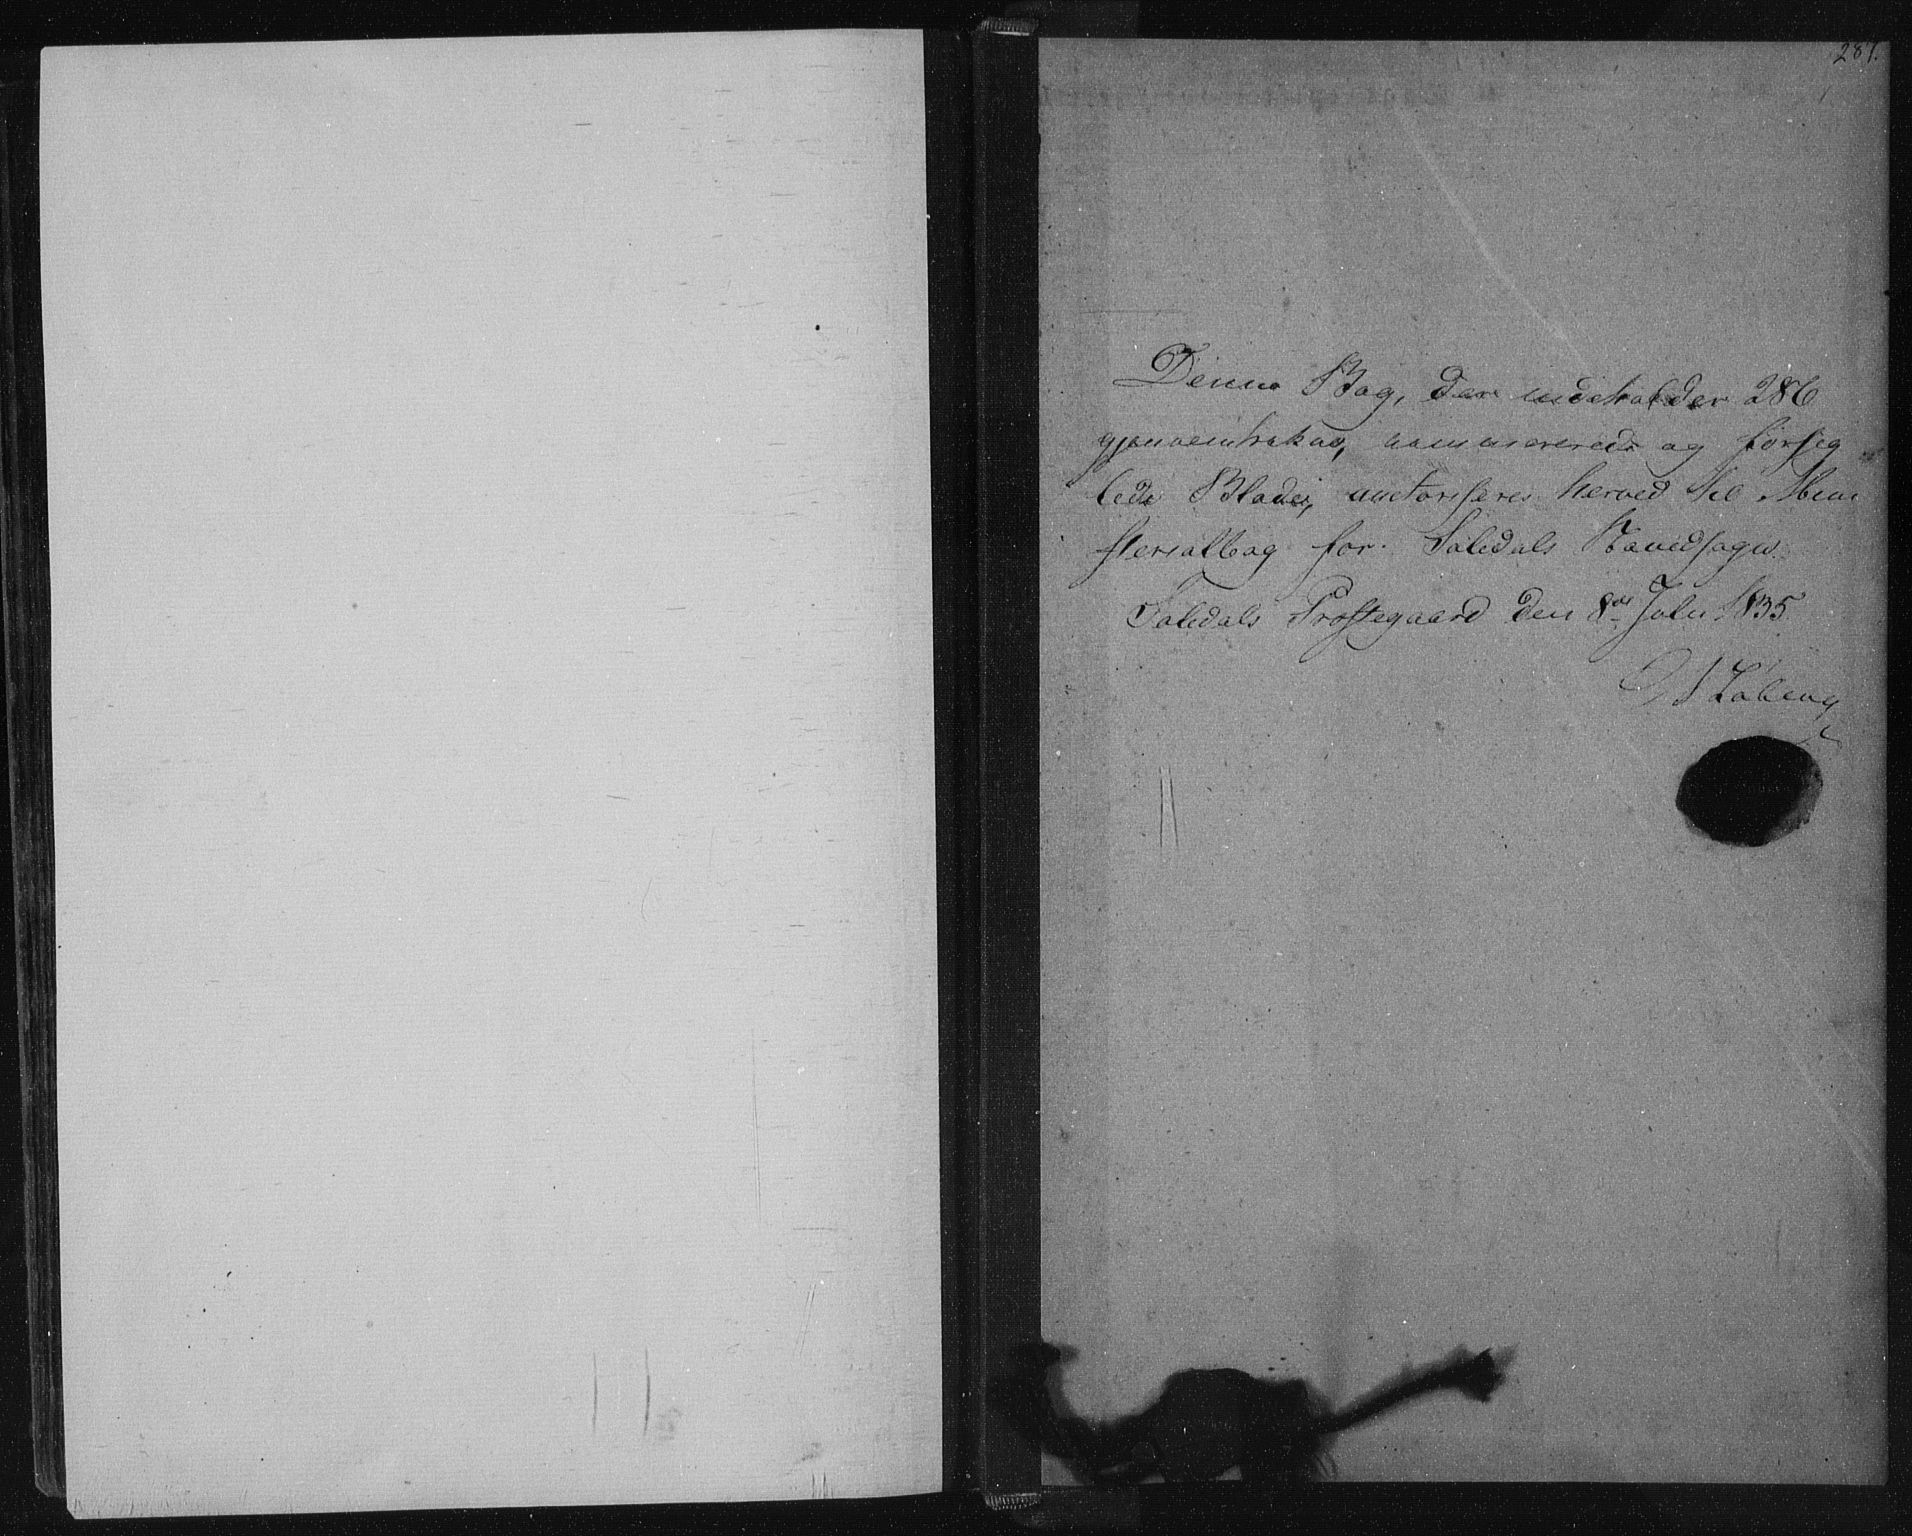 287.
Denne Bog, der indeholder 286
gjennemtrukne, nummererede og forseg
lede Blade, auctoriseres herved til Mini
sterialbog for Saltdals Hovedsogn.
Saltdals Præstegaard den 8de July 1835